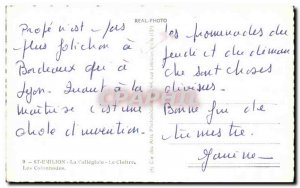 REAL-PHOTO
Profé n'est pas
plus folichon à
Bordeaux qu'à
Lyon. Quant à la
maîtrise c'est une
chose d'invention.
Les promenades du
jeudi et du diman
che sont choses
divines.
Bonne fin de
trimestre.
Janine
9 - ST-EMILION - La Collégiale - Le Cloître.
Les Colonnades.